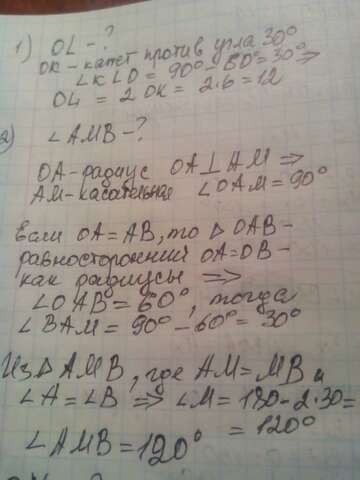 1) OL - ?
OK - катет против угла 30°
∠KLO = 90° - 60° = 30° ⇒
OL = 2 OK = 2·6 = 12
2) ∠AMB - ?
OA - радиус OA ⊥ AM ⇒
AM - касательная ∠OAM = 90°
Если OA = AB, то △OAB -
равносторонний OA = OB -
как радиусы ⇒
∠OAB = 60°, тогда
∠BAM = 90° - 60° = 30°
Из △AMB, где AM = MB и
∠A = ∠B ⇒ ∠M = 180 - 2·30 =
= 120°
∠AMB = 120°